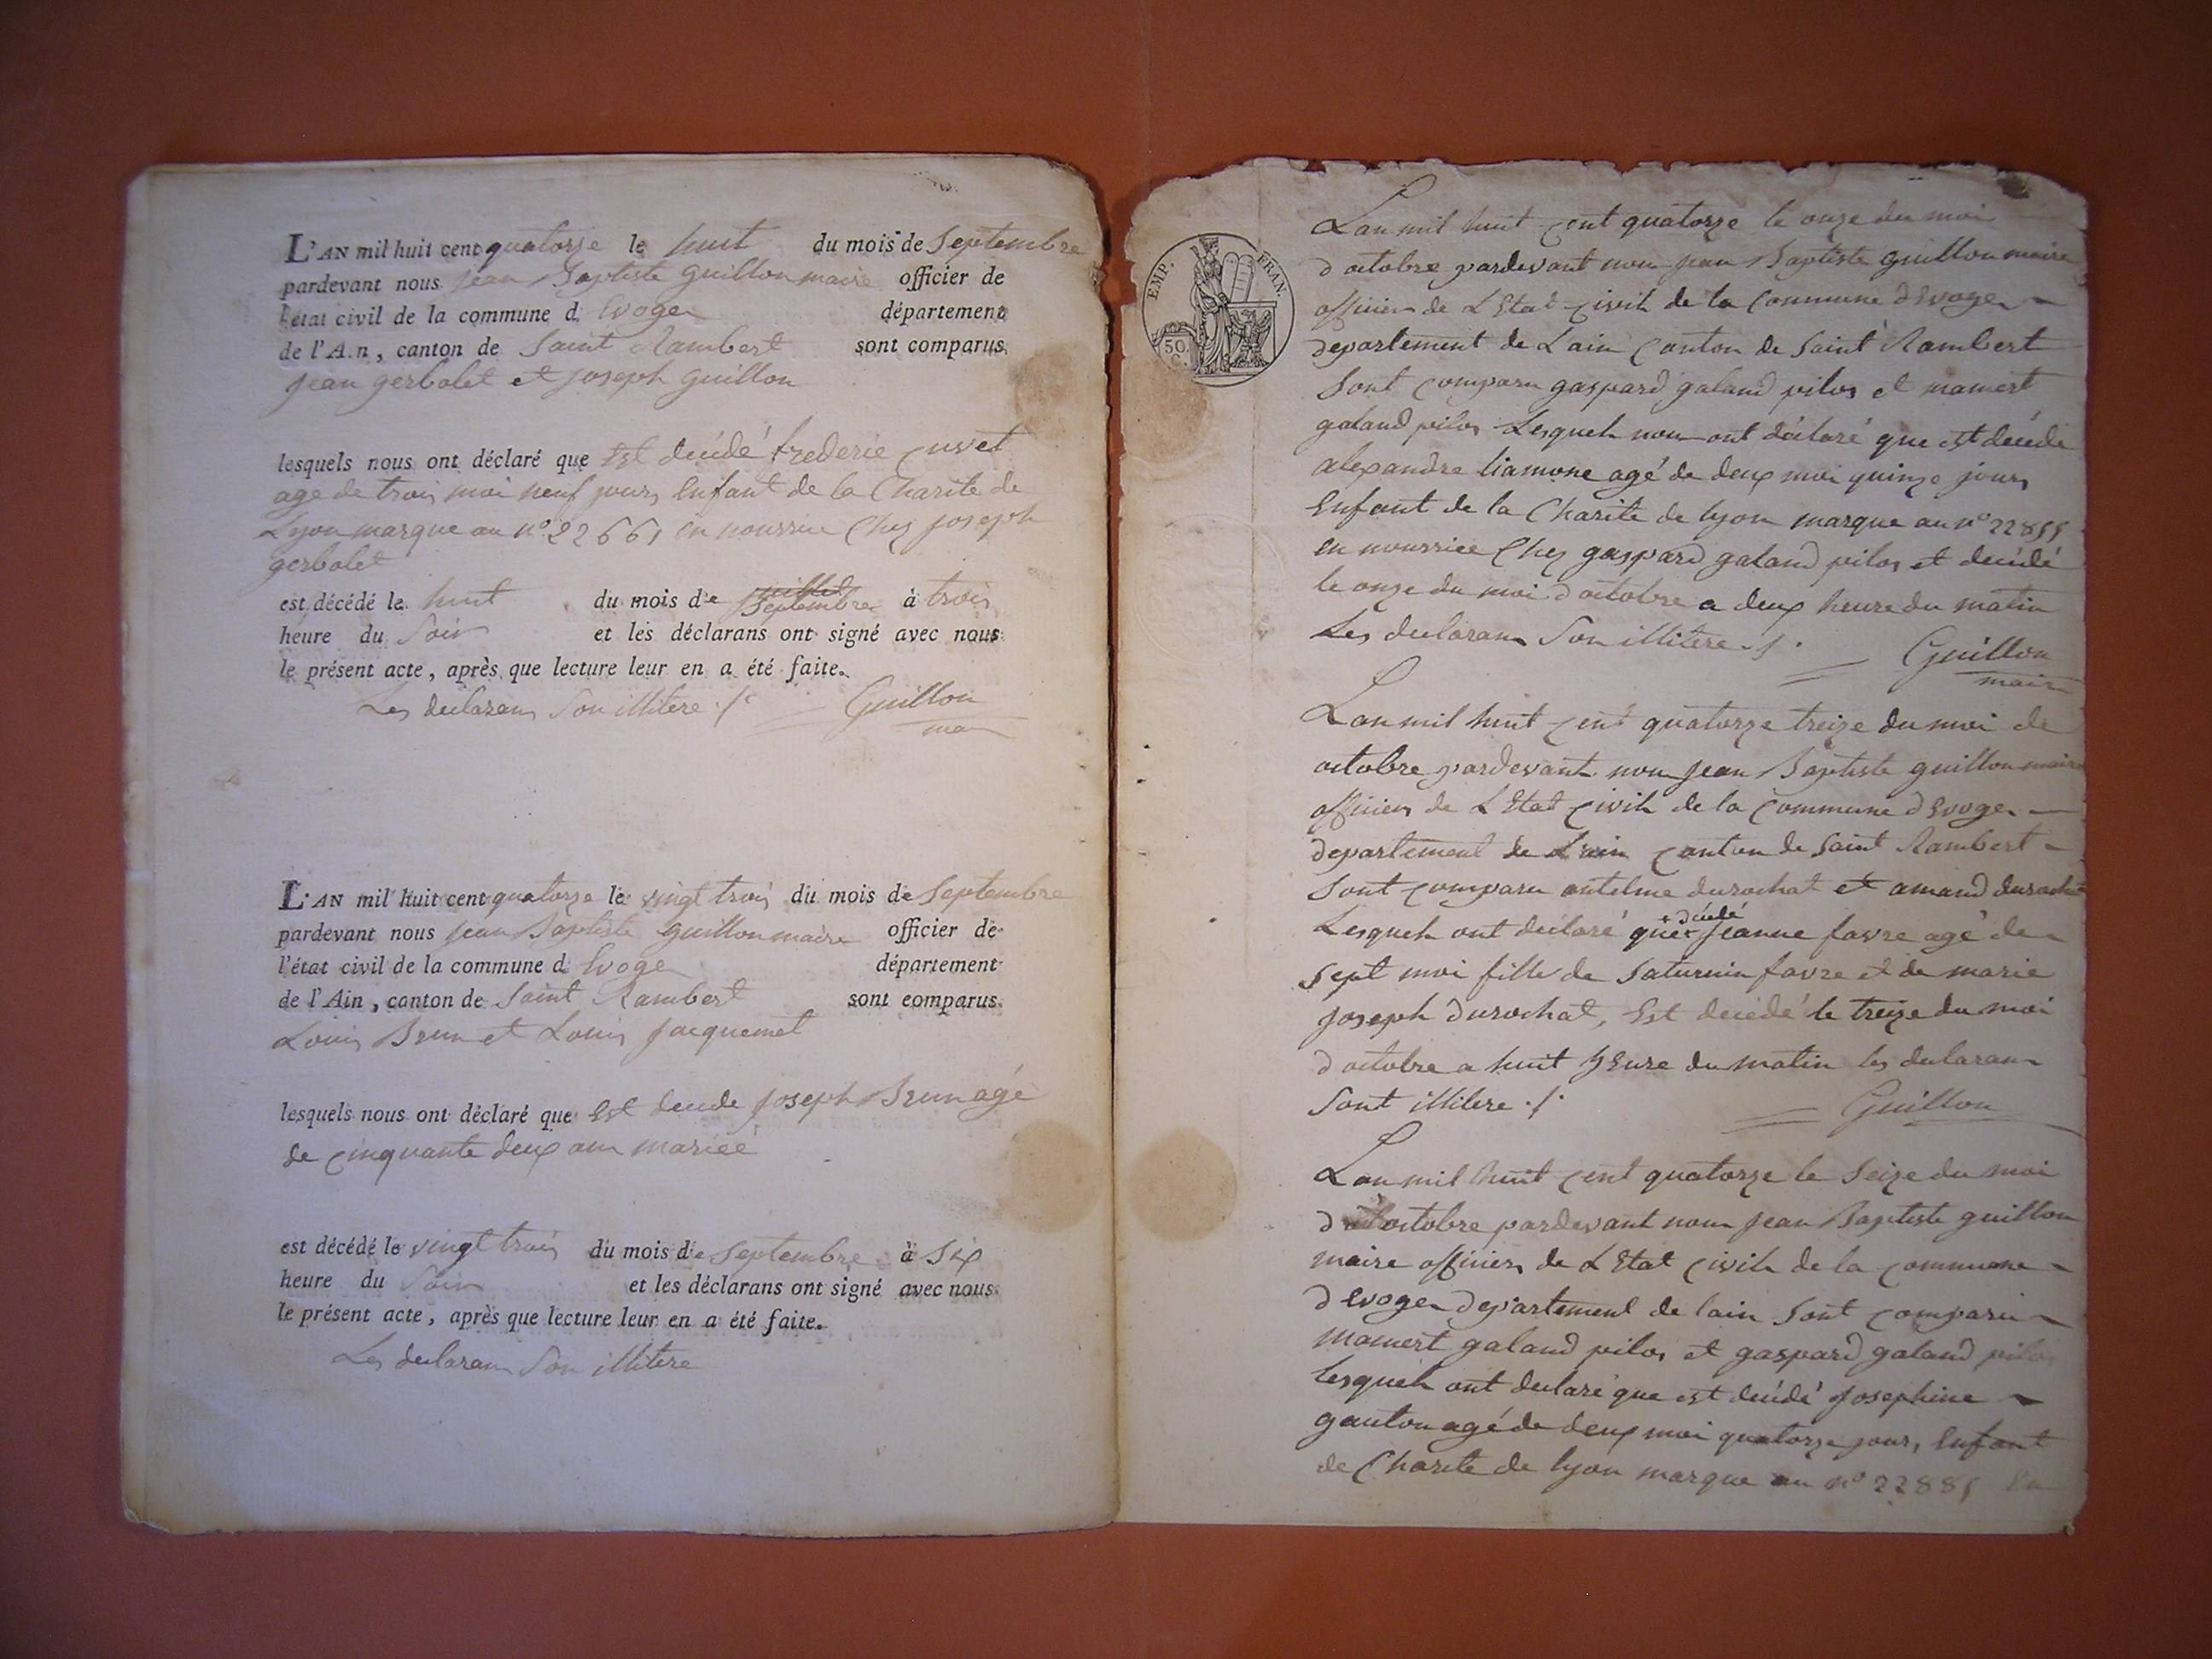 L'AN mil huit cent quatorze le huit du mois de Septembre
pardevant nous jean Baptiste guillon maire officier de
l'état civil de la commune d Evoges département
de l'A.n, canton de Saint Rambert sont comparus
jean gerbolet et joseph guillon
lesquels nous ont déclaré que Est decédé frederic cuvet
age de trois moi neuf jours Enfant de la Charite de
Lyon marque au n° 22661 en nourrice Chez joseph
gerbolet
est décédé le huit du mois de juillet Septembre à trois
heure du Soir et les déclarans ont signé avec nous
le présent acte, après que lecture leur en a été faite.
Les declarans Son illitere ./. Guillon
L'AN mil huit cent quatorze le vingt trois du mois de Septembre
pardevant nous jean Baptiste guillon maire officier de
l'état civil de la commune d Evoges département
de l'Ain, canton de Saint Rambert sont comparus
Louis Brun et Louis jacquemet
lesquels nous ont déclaré que Est decede joseph Brun agé
de cinquante deux ans mariéé
est décédé le vingt trois du mois de Septembre à Six
heure du Soir et les déclarans ont signé avec nous
le présent acte, après que lecture leur en a été faite.
Les declarans Son illitere
EMP. FRAN.
50
C.
Lan mil huit cent quatorze le onze du moi
d octobre pardevant nous jean Baptiste guillon maire
officier de L Etat civil de la Commune d Evoges
departement de Lain Canton de Saint Rambert
Sont comparu gaspard galand pilos et mamert
galand pilos Lesquels nous ont déclaré que est decede
alexandre liamone agé de deux moi quinze jours
Enfant de la Charite de lyon marque au n° 22855
en nourrice Chez gaspard galand pilos et decédé
le onze du moi d octobre a deux heure du matin
Les declarans Son illitere ./. Guillon
maire
Lan mil huit cent quatorze treize du moi de
octobre pardevant nous jean Baptiste guillon maire
officier de L Etat civil de la Commune d Evoges
departement de Lain Canton de Saint Rambert
Sont comparu antelme durochat et amand durochat
Lesquels ont declaré que + decédé jeanne favre agé de
Sept moi fille de Saturnin favre et de marie
joseph durochat, Est decédé le treize du moi
d octobre a huit hEure du matin les declarans
Sont illitere ./. Guillon
Lan mil huit cent quatorze le Seize du moi
d octobre pardevant nous jean Baptiste guillon
maire officier de L Etat civil de la commune
d Evoges departement de lain Sont comparu
mamert galand pilos et gaspard galand pilos
lesquels ont declaré que est decédé josephine
gauton agé de deux moi quatorze jours Enfant
de Charite de lyon marque au n° 22885 En